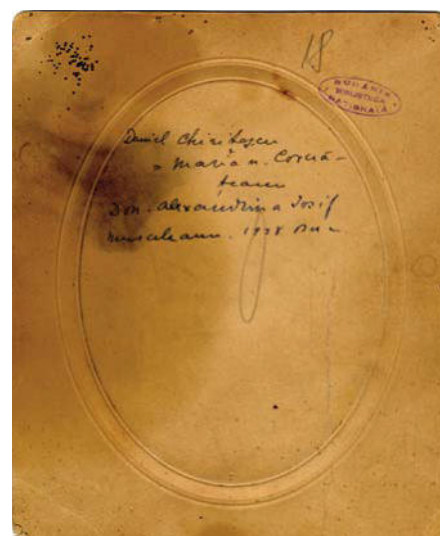 18
ROMÂNIA
BIBLIOTECA
NAȚIONALĂ
Daniel Chirițescu
Maria n. Cornă-
teanu
Don. Alexandrina Iosif
Musceleanu. 1978 Buc.